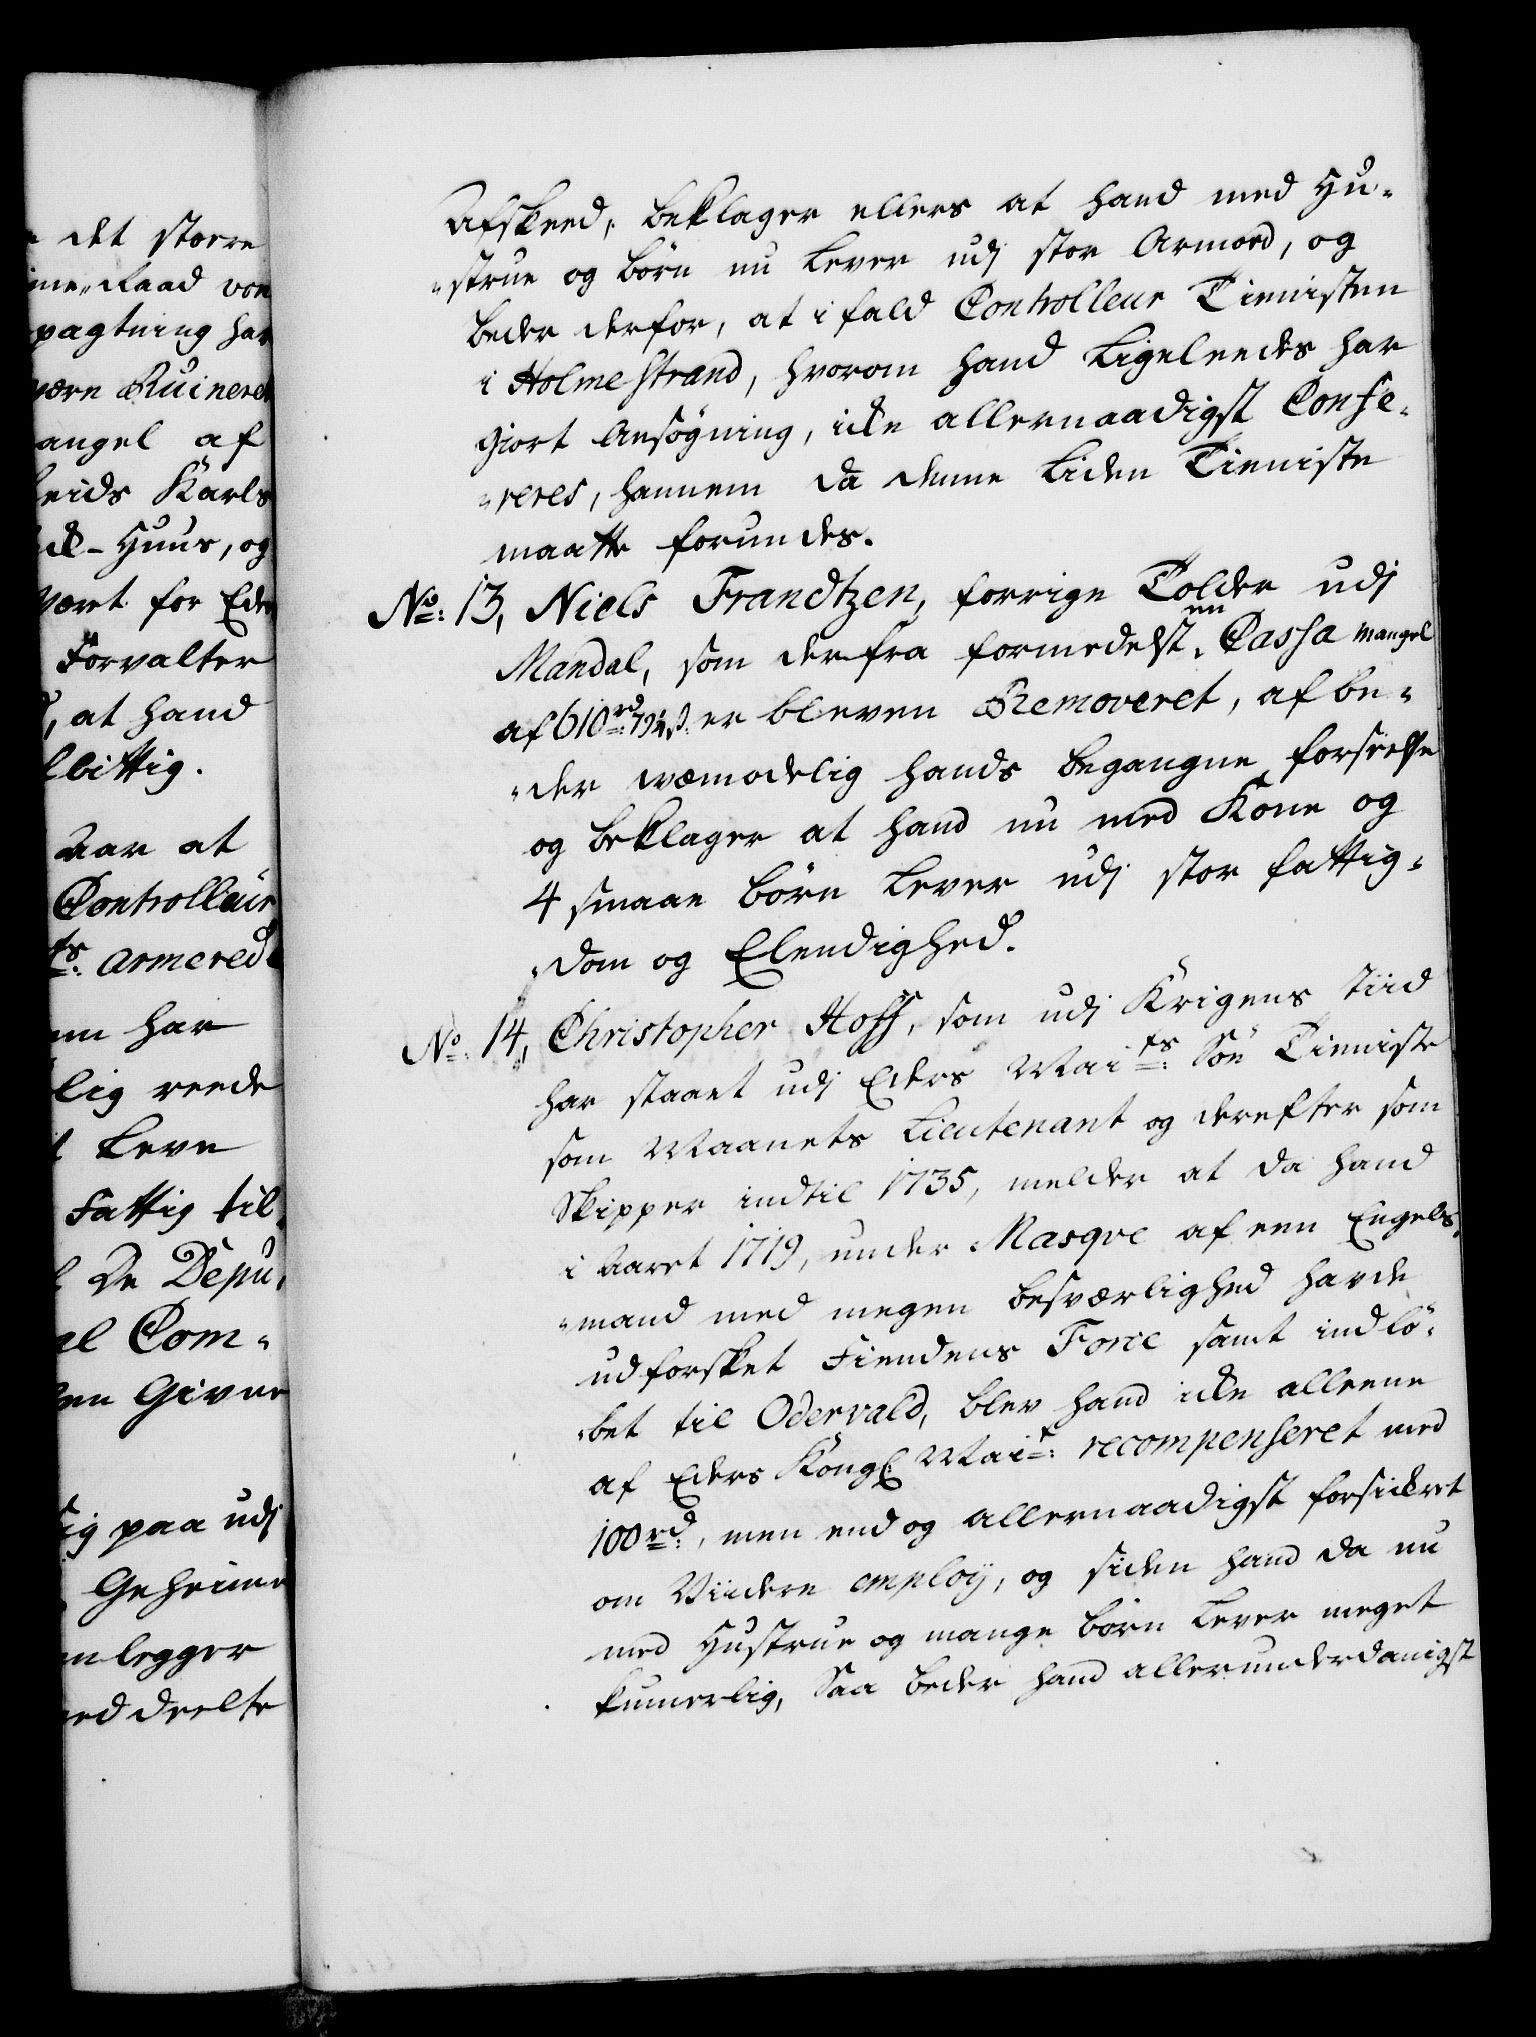 det større
Raad von
pagtning har
være Ruineret
angel af
Karls
Huus, og
været for Eders
Forvalter
, at hand
bittig.
Aar at
Controlleur
ts: armerede
har
lig reede
Leve
Fattig til
De Depu,
Com-
Givne
paa udj
Geheime
legger
deelte
Afskeed, beklager ellers at hand med Hu-
"strue og børn nu lever udj stor Armoed, og
beder derfor, at ifald Controlleur Tienisten
i Holmestrand, hvorom hand Ligeleedes har
giort Ansøgning, icke allernaadigst Confe-
"reres, hannem da denne Liden Tieniste
maatte forundes.
No: 13, Niels Frandtzen, forrige Tolder udj
Mandal, som derfra formedelst en Cassa Mangel
af 610 rd: ß: er bleven Removeret, afbe-
"der væmodelig hands begangne forseelse
og beklager at hand nu med Kone og
4 smaae børn lever udj stor fattig-
"dom og Elendighed.
No: 14, Christopher Hoff, som udj Krigens tiid
har staaet udj Eders Maits: Søe Tieniste
som Maanets Lieutenant og derefter som
Skipper indtil 1735, melder at da hand
i Aaret 1719, under Masqve af een Engels-
"mand med megen besværlighed havde
udforsket Fiendens Force samt indlø-
"bet til Odervald, blev hand icke alleene
af Eders Kongl: Mait: recompenseret med
100 rd:, men end og allernaadigst forsickret
om Viidere employ, og siden hand da nu
med Hustrue og mange børn lever meget
kumerlig, Saa beder hand allerunderdanigst